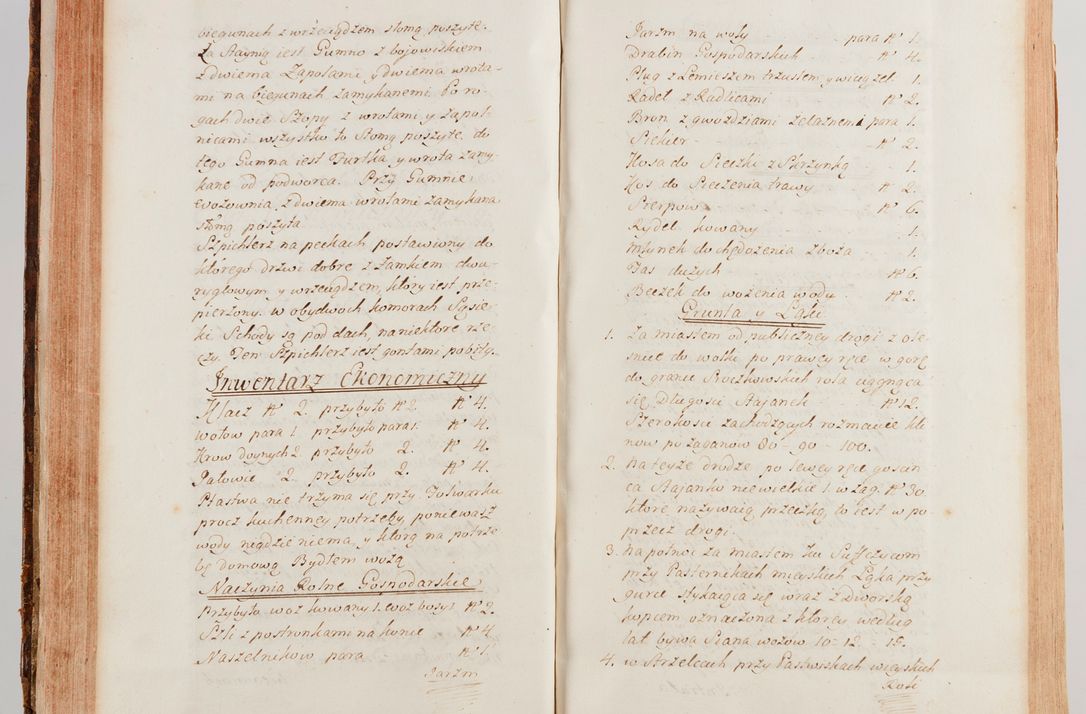 biegunach z wrzeciądzem słomą poszyte.
Za Staynią iest Gumno z bojowiskiem
z dwiema Zapolami, y dwiema wrota-
mi na biegunach zamykanemi. Po ro-
gach dwie Szopy z wrotami, y zapol-
nicami wszystko to Słomą poszyte. do
tego Gumna iest Furtka, y wrota zamy-
kane od podworca. Przy Gumnie
Wozownia, z dwiema wrotami zamykana
słomą poszyta
Szpichlerz na peckach postawiony do
którego drzwi dobre z Zamkiem dwu-
ryglowym, y wrzeciądzem, ktory iest prze-
pierzony. w obydwoch komorach Sąsie-
ki Schody są pod dach, na niektore rze-
czy. Ten Szpichlerz iest gontami pobity.
Inwentarz Ekonomiczny
Klacz N 2. przybyło N 2. N 4.
Wołow para 1. przybyło para 1. N 4.
Krow doynych 2. przybyło 2. N 4.
Jałowic 2. przybyło 2. N 4.
Ptastwa nie trzyma się przy Folwarku
procz kuchenney potrzeby, poniewasz
wody nigdzie niema, y ktorą na potrze
bę domową Bydłem wożą
Naczynia Rolne Gospodarskie
Przybyło woz kowany 1. woz bosy 1 N 2.
Szli z postronkami na konie N 4
Naszelnikow para N 1.
Jarzm
Jarzm na woły para N 1.
Drabin Gospodarskich N 4.
Pług z Lemieszem trzusłem, y 1.
Radeł z Radlicami N 2.
Bron z gwoździami żelaznemi para 1.
Siekier N 2.
Kosa do Sieczki z Skrzynką 1.
Kos do Sieczenia trawy N 2.
Sierpow N 6.
Rydel kowany 1.
Młynek do chędożenia zboża 1.
Fas dużych N 6.
Beczek do wożenia wody N 2.
Grunta y Łąki
1. Za miastem od publiczney drogi z Ole-
śnice do wolki po prawey ręce w gorę
do granic Stoczkowskich rola ciągnąca
się Długości Stajanek N 12.
Szerokości zachodzących rozmaicie kli
now po zagonow 80 - 90 - 100.
2. Na teyże drodze po lewey ręce gościń
ca Stajanko niewielkie 1. w zag. N 30.
ktore nazywaią przeczką, to iest w po
przecz drogi.
3. Na połnoc za miastem ku
przy Pasternikach mieyskich Łąka przy
gurce stykaiąca się wraz z Dworską
kopcem oznaczona z ktorey według
lat bywa Siana wozow 10 - 12. - 15.
4. w Strzelcach przy Pastwiskach wieyskich
Roli